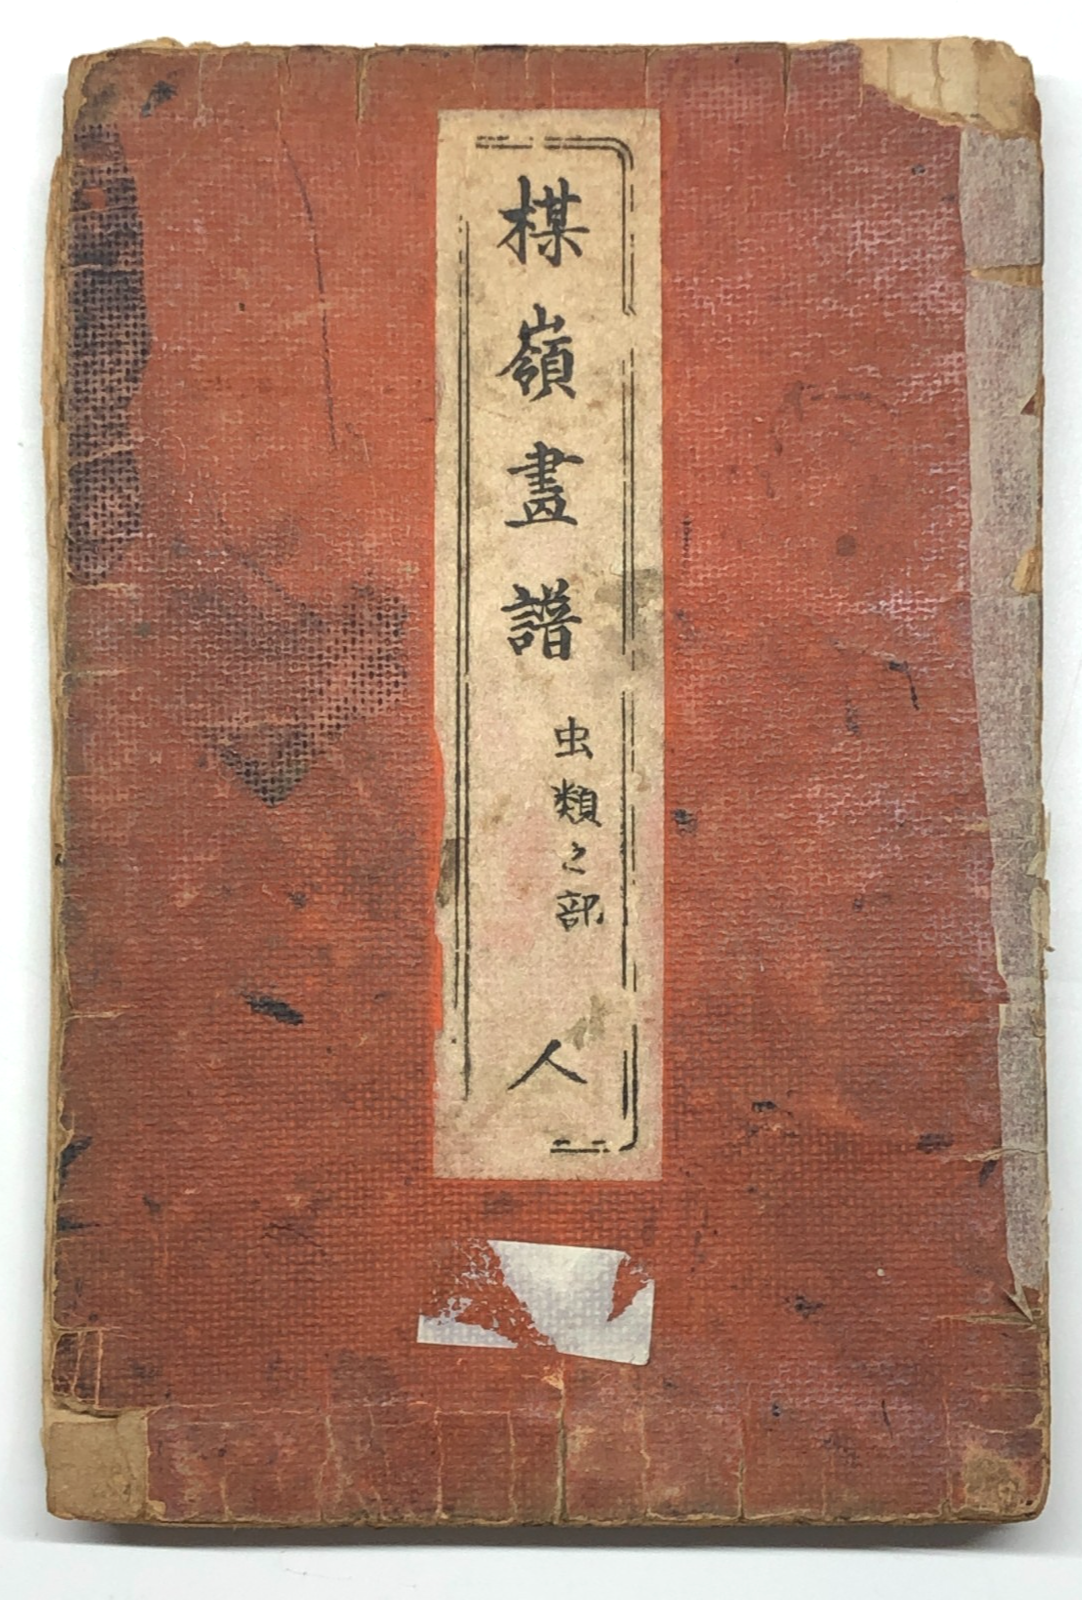 楳嶺畫譜
虫類之部
人